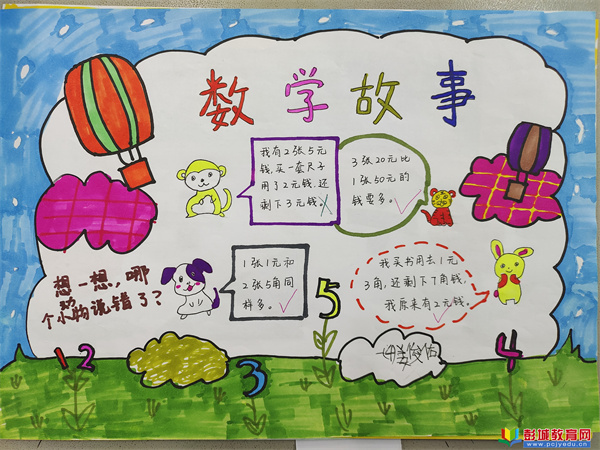 数学故事
我有2张5元
钱,买一套尺子
用了2元钱,还
剩下3元钱
3张20元比
1张50元的
钱要多。
想一想,哪
个小动物说错了?
1张1元和
2张5角同
样多。
我买书用去1元
3角,还剩下7角钱,
我原来有2元钱。
1
2
3
5
4
彭城教育网
www.pcjyedu.cn